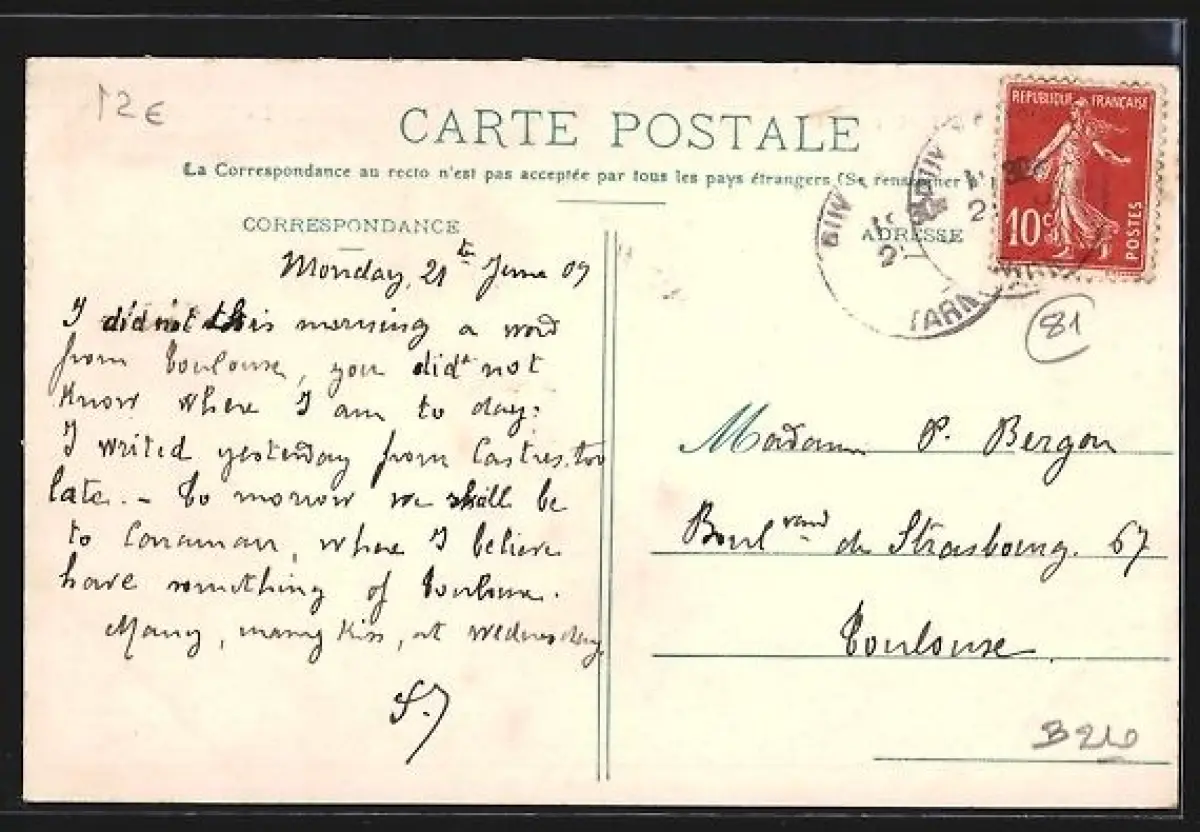 12€
CARTE POSTALE
La Correspondance au recto n'est pas acceptée par tous les pays étrangers (Se renseigner
REPUBLIQUE FRANÇAISE
10c
POSTES
CORRESPONDANCE
ADRESSE
TARN
81
Monday, 21th June 09
I did not this morning a word
from Toulouse, you did not
Know where I am to day:
I writed yesterday from Castres too
late. - To morrow we shall be
to Caraman, where I believe
have something of Toulouse.
Many, many Kiss, at wednesday
S.J
Madame P. Bergon
Boulvard de Strasbourg. 67
Toulouse
B210